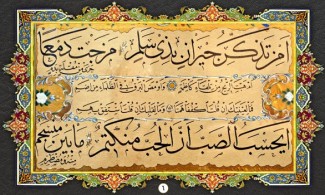 امن تذكر جيران بذی سلم مزجت دمعا
جری من مقلة بدم
ام هبت الريح من تلقاء كاظمة واومض البرق فی الظلماء من اضم
فما لعينيك ان قلت اكففا همتا وما لقلبك ان قلت استفق يهم
ايحسب الصب ان الحب منكتم ما بين منسجم
منه ومضطرم
١